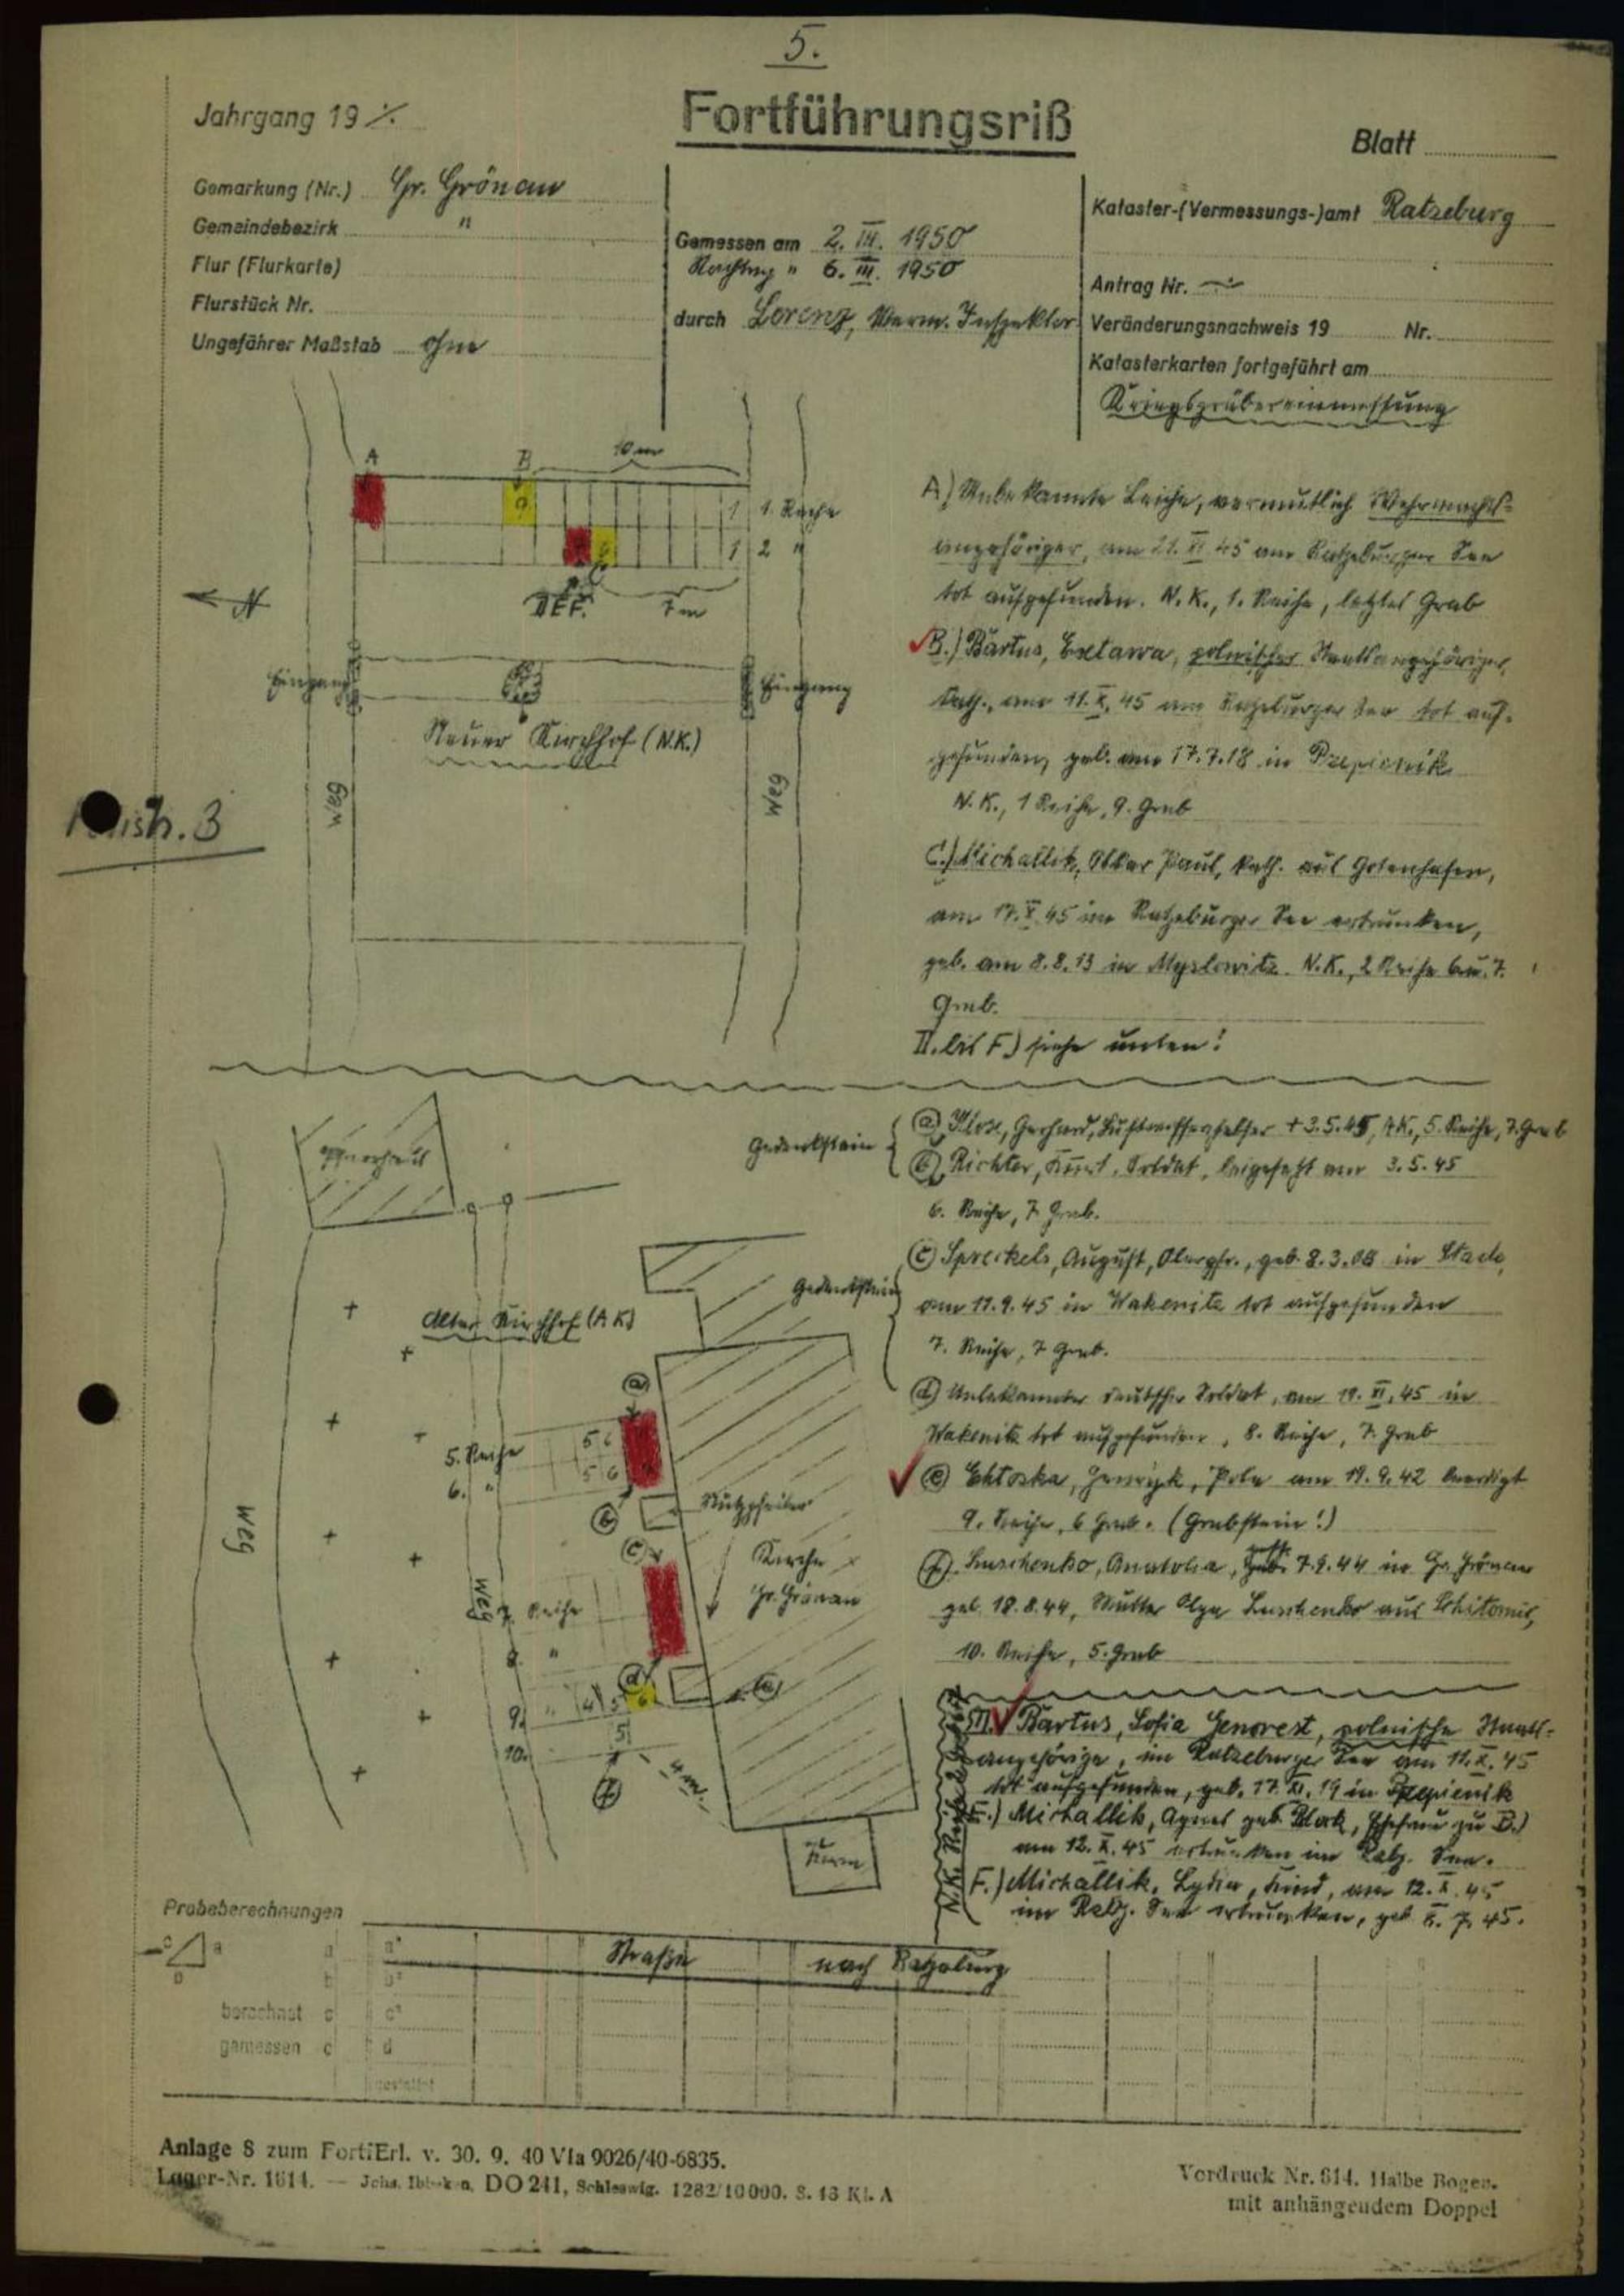 5.
Jahrgang 19 ·/.
Fortführungsriß
Blatt
Gemarkung (Nr.) Gr. Grönau
Gemeindebezirk "
Flur (Flurkarte)
Flurstück Nr.
Ungefährer Maßstab ohne
Gemessen am 2. III. 1950
Nachtrag " 6. III. 1950
durch Lorenz, Verm. Inspektor
Kataster-(Vermessungs-)amt Ratzeburg
Antrag Nr.
Veränderungsnachweis 19 Nr.
Katasterkarten fortgeführt am
Kriegsgräbereinmessung
A
B
10 m
9
1 1. Reihe
1 2 "
C
DEF.
7 m
N
Eingang
Eingang
Neuer Kirchhof (N.K.)
Weg
Weg
3
A) Unbekannte Leiche, vermutlich Wehrmachts-
angehöriger, am 21. XI 45 am Ratzeburger See
tot aufgefunden. N.K., 1. Reihe, letztes Grab
B.) Bartus, polnischer Staatsangehöriger,
kath., am 11. X. 45 am Ratzeburger See tot auf-
gefunden, geb. am 17.7.18 in
N.K., 1 Reihe, 9. Grab
C.) Michallik, Oskar Paul, kath. aus Gotenhafen,
am 17. X. 45 im Ratzeburger See ertrunken,
geb. am 8.8.13 in Myslowitz. N.K., 2 Reihe 6 u. 7.
Grab.
bis F) siehe unten!
Pfarrhaus
Alter Kirchhof (A K)
Gedenkstein
(a) Klose, Gerhard, Luftwaffenhelfer + 3.5.45, AK., 5. Reihe, 7. Grab
(b) Richter, Kurt, Soldat, beigesetzt am 3.5.45
6. Reihe, 7. Grab.
Gedenkstein
(c) Spreckels, August, Obergfr., geb. 8.3.08 in Stade,
am 11.9.45 in Wakenitz tot aufgefunden
7. Reihe, 7 Grab.
(d) Unbekannter deutscher Soldat, am 19. XI. 45 in
Wakenitz tot aufgefunden, 8. Reihe, 7. Grab
(e) Pole am 19.9.42 beerdigt
9. Reihe, 6 Grab. (Grabstein!)
(f) Luschenko, Anatolia, 7.9.44 in Gr. Grönau
geb. 18.8.44, Mutter Olga Luschenko aus
10. Reihe, 5. Grab
(a)
5. Reihe 5 6
6. " 5 6
(b)
Stützpfeiler
(c)
Kirche
Gr. Grönau
Weg
Weg
7. Reihe
8. "
(d)
9. " 4 5 6
(e)
10. 5
(f)
4 m.
Turm
Bartus, Sofia polnische Staats-
angehörige, im Ratzeburger See am 11. X. 45
tot aufgefunden, geb. 17. XI. 19 in
E.) Michallik, Agnes geb. Ehefrau zu
am 12. X. 45 ertrunken im Ratz. See.
F.) Michallik, Lydia, Kind, am 12. X. 45
im Ratz. See ertrunken, geb. 7. 45.
N.K. Reihe 2
Probeberechnungen
Straße nach Ratzeburg
c a
b
a a²
b b²
berechnet c c²
gemessen c d
gestattet
Anlage 8 zum FortfErl. v. 30. 9. 40 VIa 9026/40-6835.
Lager-Nr. 1614. — Johs. Ibbeken, DO 241, Schleswig. 1282/10000. 8. 43 Kl. A
Vordruck Nr. 614. Halbe Bogen.
mit anhängendem Doppel